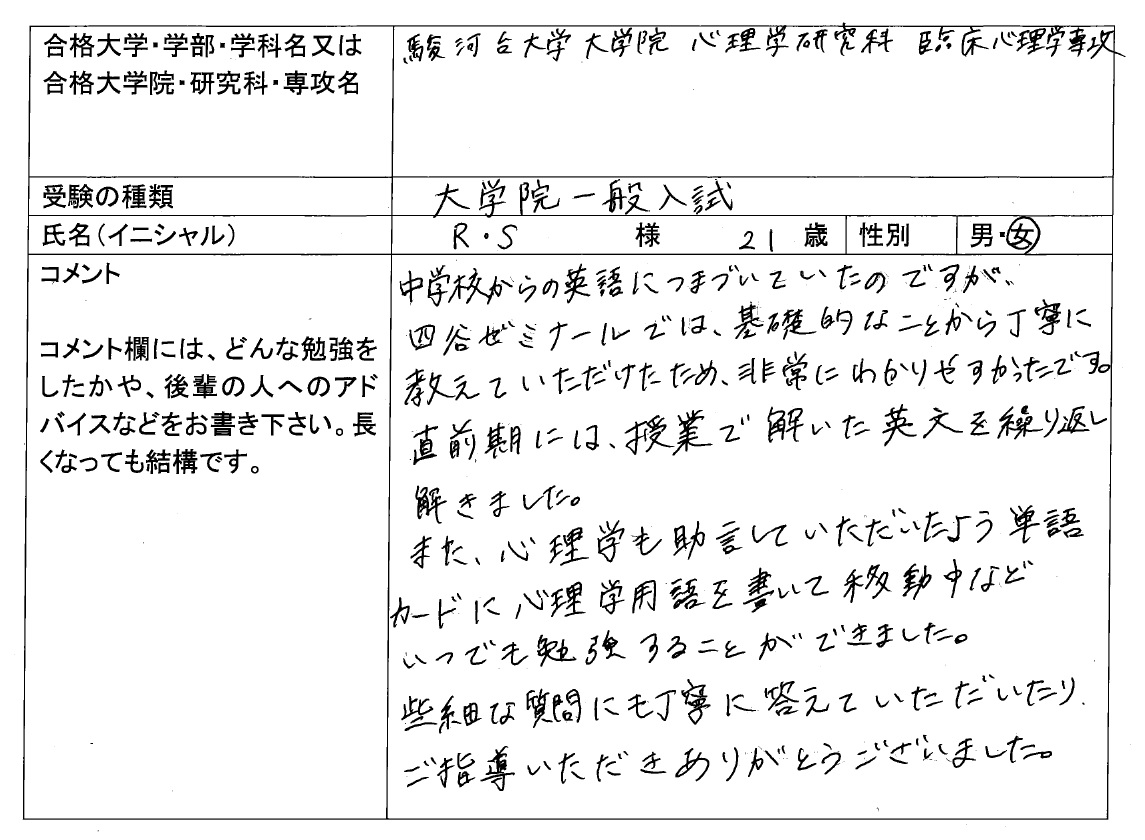 合格大学・学部・学科名又は
合格大学院・研究科・専攻名
駿河台大学大学院 心理学研究科 臨床心理学専攻
受験の種類
大学院一般入試
氏名(イニシャル)
R・S 様 21 歳 性別 男・女
コメント
コメント欄には、どんな勉強を
したかや、後輩の人へのアド
バイスなどをお書き下さい。長
くなっても結構です。
中学校からの英語につまづいていたのですが、
四谷ゼミナールでは、基礎的なことから丁寧に
教えていただけたため、非常にわかりやすかったです。
直前期には、授業で解いた英文を繰り返し
解きました。
また、心理学も助言していただいたよう単語
カードに心理学用語を書いて移動中など
いつでも勉強することができました。
些細な質問にも丁寧に答えていただいたり
ご指導いただきありがとうございました。